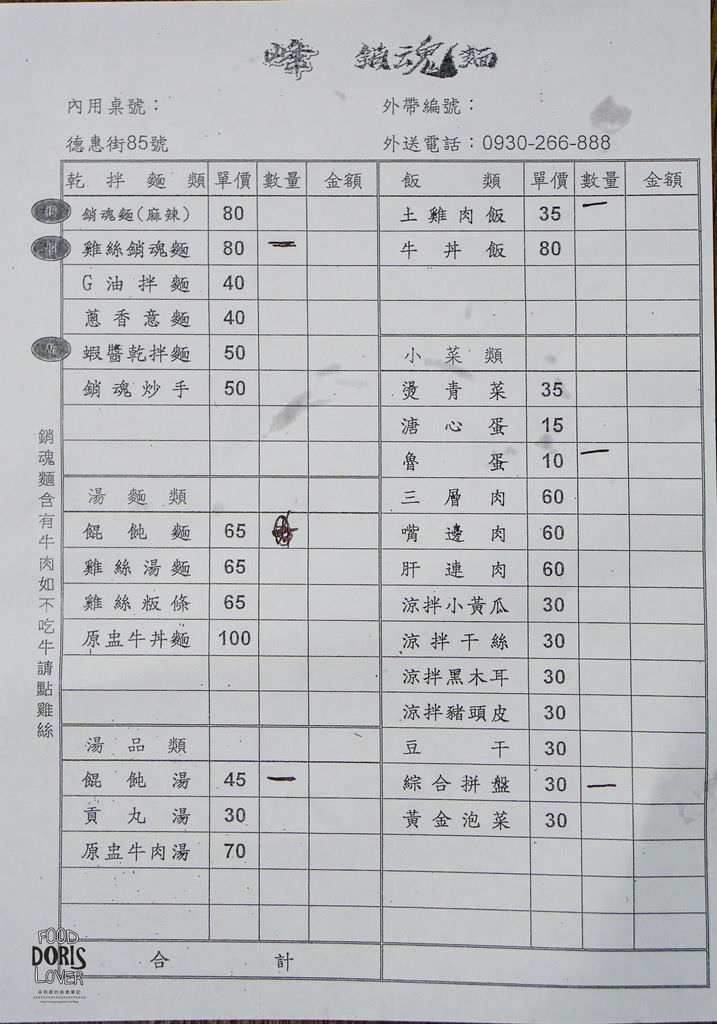 峰 銷魂麵
內用桌號：
外帶編號：
德惠街85號
外送電話：0930-266-888
乾拌麵類 單價 數量 金額
銷魂麵(麻辣) 80
雞絲銷魂麵 80 一
G油拌麵 40
蔥香意麵 40
蝦醬乾拌麵 50
銷魂炒手 50
湯麵類
餛飩麵 65
雞絲湯麵 65
雞絲粄條 65
原盅牛丼麵 100
湯品類
餛飩湯 45 一
貢丸湯 30
原盅牛肉湯 70
飯類 單價 數量 金額
土雞肉飯 35 一
牛丼飯 80
小菜類
燙青菜 35
溏心蛋 15
魯蛋 10 一
三層肉 60
嘴邊肉 60
肝連肉 60
涼拌小黃瓜 30
涼拌干絲 30
涼拌黑木耳 30
涼拌豬頭皮 30
豆干 30
綜合拼盤 30 一
黃金泡菜 30
合計
銷魂麵含有牛肉如不吃牛請點雞絲
FOOD
DORIS
LOVER